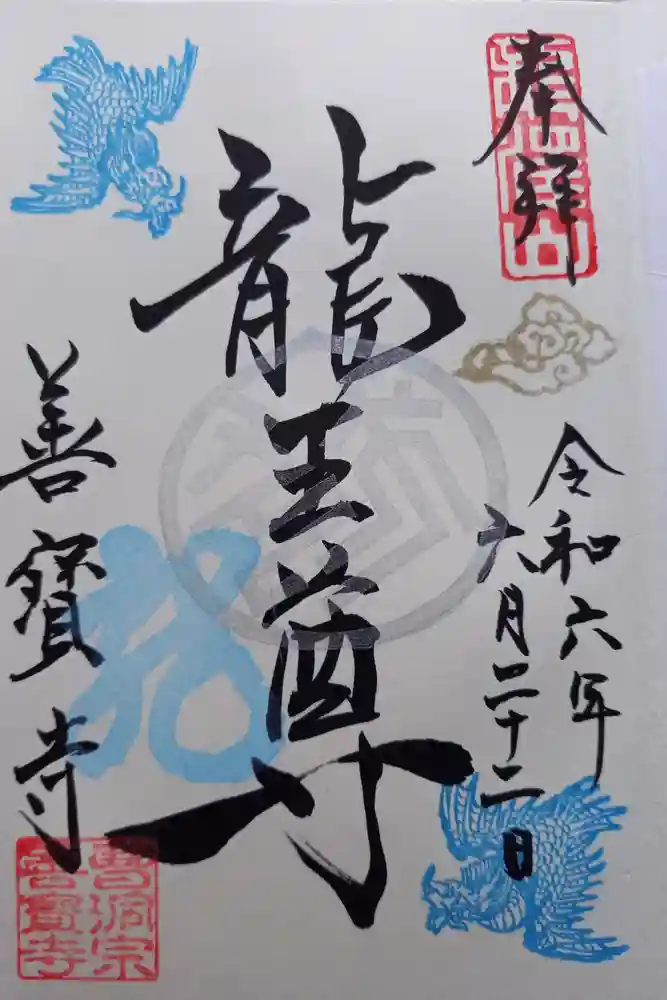 奉拝
令和六年
六月二十二日
龍王尊
善寳寺
曹洞宗
善寳寺